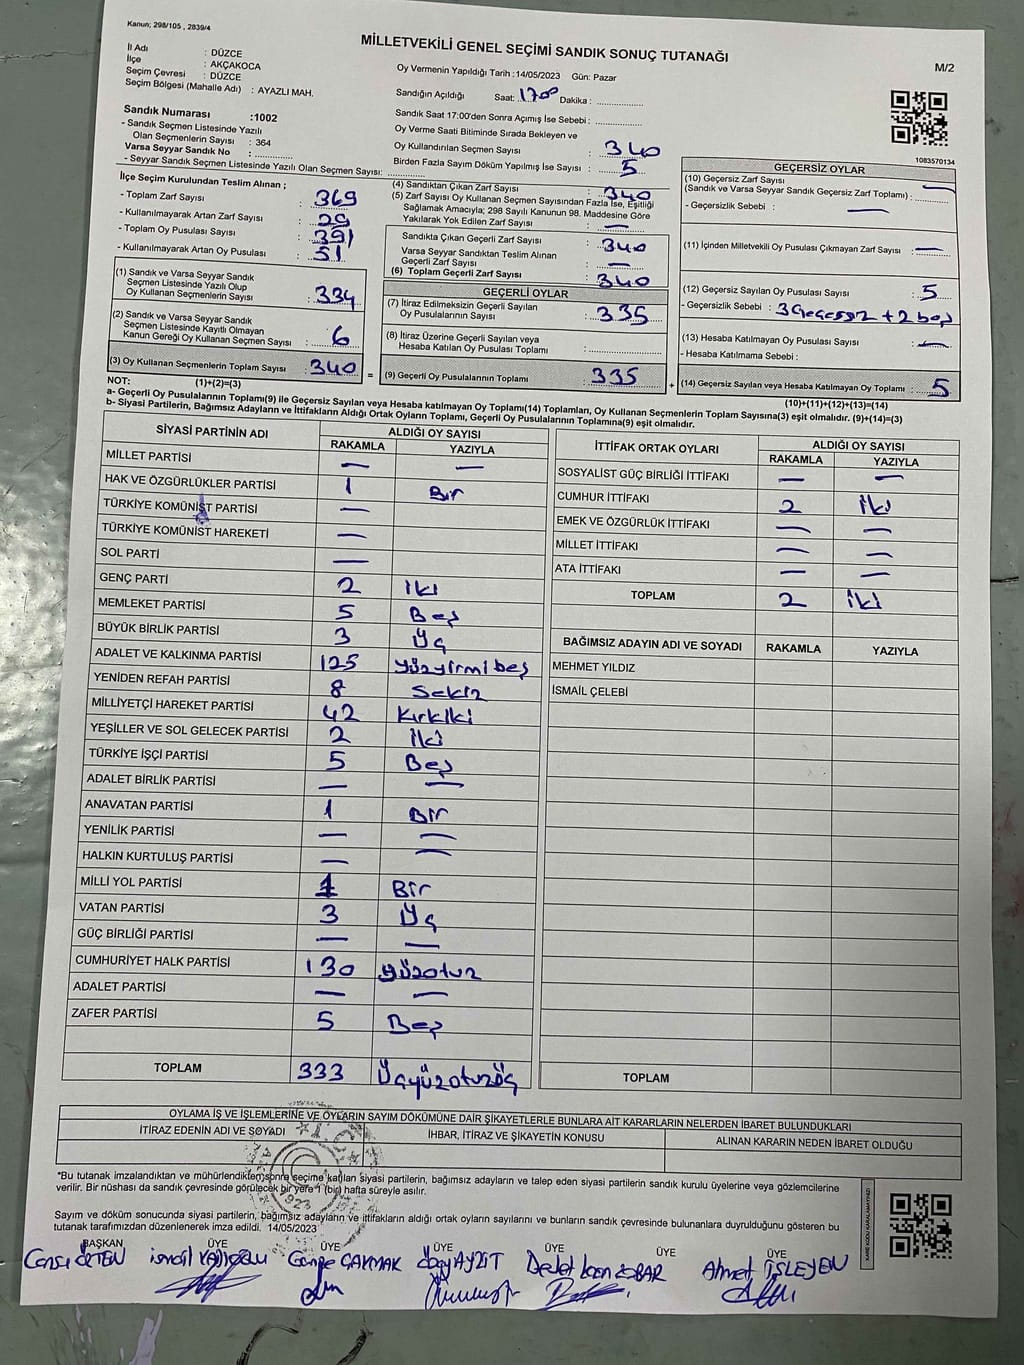 Kanun; 298/105 , 2839/4
MİLLETVEKİLİ GENEL SEÇİMİ SANDIK SONUÇ TUTANAĞI
M/2
İl Adı : DÜZCE
İlçe : AKÇAKOCA
Seçim Çevresi : DÜZCE
Seçim Bölgesi (Mahalle Adı) : AYAZLI MAH.
Oy Vermenin Yapıldığı Tarih :14/05/2023 Gün: Pazar
Sandığın Açıldığı Saat: 17:00 Dakika :
Sandık Saat 17:00'den Sonra Açımış İse Sebebi :
Oy Verme Saati Bitiminde Sırada Bekleyen ve
Oy Kullandırılan Seçmen Sayısı : 340
Birden Fazla Sayım Döküm Yapılmış İse Sayısı : 5
Sandık Numarası :1002
- Sandık Seçmen Listesinde Yazılı
Olan Seçmenlerin Sayısı : 364
Varsa Seyyar Sandık No :
- Seyyar Sandık Seçmen Listesinde Yazılı Olan Seçmen Sayısı:
1083570134
İlçe Seçim Kurulundan Teslim Alınan ;
- Toplam Zarf Sayısı : 369
- Kullanılmayarak Artan Zarf Sayısı : 29
- Toplam Oy Pusulası Sayısı : 391
- Kullanılmayarak Artan Oy Pusulası : 51
(1) Sandık ve Varsa Seyyar Sandık
Seçmen Listesinde Yazılı Olup
Oy Kullanan Seçmenlerin Sayısı : 334
(2) Sandık ve Varsa Seyyar Sandık
Seçmen Listesinde Kayıtlı Olmayan
Kanun Gereği Oy Kullanan Seçmen Sayısı : 6
(3) Oy Kullanan Seçmenlerin Toplam Sayısı : 340
(4) Sandıktan Çıkan Zarf Sayısı : 340
(5) Zarf Sayısı Oy Kullanan Seçmen Sayısından Fazla İse, Eşitliği
Sağlamak Amacıyla; 298 Sayılı Kanunun 98. Maddesine Göre
Yakılarak Yok Edilen Zarf Sayısı : —
Sandıkta Çıkan Geçerli Zarf Sayısı : 340
Varsa Seyyar Sandıktan Teslim Alınan
Geçerli Zarf Sayısı : —
(6) Toplam Geçerli Zarf Sayısı : 340
GEÇERLİ OYLAR
(7) İtiraz Edilmeksizin Geçerli Sayılan
Oy Pusulalarının Sayısı : 335
(8) İtiraz Üzerine Geçerli Sayılan veya
Hesaba Katılan Oy Pusulası Toplamı :
= (9) Geçerli Oy Pusulalarının Toplamı : 335 +
GEÇERSİZ OYLAR
(10) Geçersiz Zarf Sayısı
(Sandık ve Varsa Seyyar Sandık Geçersiz Zarf Toplamı) : —
- Geçersizlik Sebebi : —
(11) İçinden Milletvekili Oy Pusulası Çıkmayan Zarf Sayısı : —
(12) Geçersiz Sayılan Oy Pusulası Sayısı : 5
- Geçersizlik Sebebi : 3 Geçersiz + 2 boş
(13) Hesaba Katılmayan Oy Pusulası Sayısı : —
- Hesaba Katılmama Sebebi :
(14) Geçersiz Sayılan veya Hesaba Katılmayan Oy Toplamı : 5
NOT: (1)+(2)=(3)
(10)+(11)+(12)+(13)=(14)
a- Geçerli Oy Pusulalarının Toplamı(9) ile Geçersiz Sayılan veya Hesaba Katılmayan Oy Toplamı(14) Toplamları, Oy Kullanan Seçmenlerin Toplam Sayısına(3) eşit olmalıdır. (9)+(14)=(3)
b- Siyasi Partilerin, Bağımsız Adayların ve İttifakların Aldığı Ortak Oyların Toplamı, Geçerli Oy Pusulalarının Toplamına(9) eşit olmalıdır.
SİYASİ PARTİNİN ADI ALDIĞI OY SAYISI
RAKAMLA YAZIYLA
MİLLET PARTİSİ — —
HAK VE ÖZGÜRLÜKLER PARTİSİ 1 Bir
TÜRKİYE KOMÜNİST PARTİSİ —
TÜRKİYE KOMÜNİST HAREKETİ —
SOL PARTİ —
GENÇ PARTİ 2 İki
MEMLEKET PARTİSİ 5 Beş
BÜYÜK BİRLİK PARTİSİ 3 Üç
ADALET VE KALKINMA PARTİSİ 125 yüzyirmibeş
YENİDEN REFAH PARTİSİ 8 Sekiz
MİLLİYETÇİ HAREKET PARTİSİ 42 Kırkiki
YEŞİLLER VE SOL GELECEK PARTİSİ 2 İki
TÜRKİYE İŞÇİ PARTİSİ 5 Beş
ADALET BİRLİK PARTİSİ — —
ANAVATAN PARTİSİ 1 Bir
YENİLİK PARTİSİ — —
HALKIN KURTULUŞ PARTİSİ — —
MİLLİ YOL PARTİSİ 1 Bir
VATAN PARTİSİ 3 Üç
GÜÇ BİRLİĞİ PARTİSİ — —
CUMHURİYET HALK PARTİSİ 130 yüzotuz
ADALET PARTİSİ — —
ZAFER PARTİSİ 5 Beş
TOPLAM 333 Üçyüzotuzüç
İTTİFAK ORTAK OYLARI ALDIĞI OY SAYISI
RAKAMLA YAZIYLA
SOSYALİST GÜÇ BİRLİĞİ İTTİFAKI — —
CUMHUR İTTİFAKI 2 İki
EMEK VE ÖZGÜRLÜK İTTİFAKI — —
MİLLET İTTİFAKI — —
ATA İTTİFAKI — —
TOPLAM 2 İki
BAĞIMSIZ ADAYIN ADI VE SOYADI RAKAMLA YAZIYLA
MEHMET YILDIZ
İSMAİL ÇELEBİ
TOPLAM
OYLAMA İŞ VE İŞLEMLERİNE VE OYLARIN SAYIM DÖKÜMÜNE DAİR ŞİKAYETLERLE BUNLARA AİT KARARLARIN NELERDEN İBARET BULUNDUKLARI
İTİRAZ EDENİN ADI VE SOYADI İHBAR, İTİRAZ VE ŞİKAYETİN KONUSU ALINAN KARARIN NEDEN İBARET OLDUĞU
*Bu tutanak imzalandıktan ve mühürlendikten sonra seçime katılan siyasi partilerin, bağımsız adayların ve talep eden siyasi partilerin sandık kurulu üyelerine veya gözlemcilerine
verilir. Bir nüshası da sandık çevresinde görülecek bir yere 1 (bir) hafta süreyle asılır.
Sayım ve döküm sonucunda siyasi partilerin, bağımsız adayların ve ittifakların aldığı ortak oyların sayılarını ve bunların sandık çevresinde bulunanlara duyrulduğunu gösteren bu
tutanak tarafımızdan düzenlenerek imza edildi. 14/05/2023
BAŞKAN ÜYE ÜYE ÜYE ÜYE ÜYE ÜYE
ÖZTEN İsmail ÇAKMAK AYYİT Devlet Ahmet İŞLEYEN